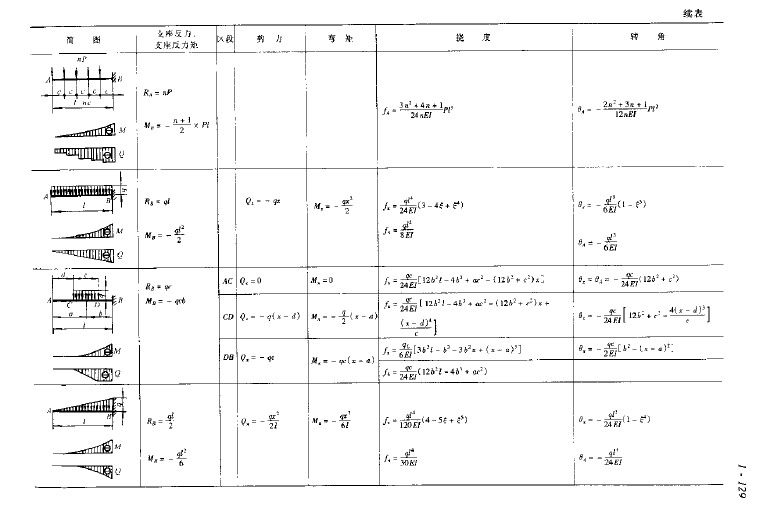 续表
简 图
支座反力、
支座反力矩
区段
剪 力
弯 矩
挠 度
转 角
nP
A
B
c c c c c
l nc
M
Q
R_B = nP
M_B = - (n+1)/2 × Pl
f_A = (3n² + 4n + 1)/(24nEI) Pl³
θ_A = - (2n² + 3n + 1)/(12nEI) Pl²
A
B
q
l
M
Q
R_B = ql
M_B = - ql²/2
Q_x = - qx
M_x = - qx²/2
f_x = ql⁴/24EI (3 - 4ξ + ξ⁴)
f_A = ql⁴/8EI
θ_x = - ql³/6EI (1 - ξ³)
θ_A = - ql³/6EI
d c
A
C
D
B
a b
l
M
Q
R_B = qc
M_B = - qcb
AC
Q_x = 0
M_x = 0
f_x = qc/24EI [12b²l - 4b³ + ac² - (12b² + c²)x]
θ_x = θ_A = - qc/24EI (12b² + c²)
CD
Q_x = - q(x - d)
M_x = - q/2 (x - d)
f_x = qc/24EI [12b²l - 4b³ + ac² - (12b² + c²)x + (x - d)⁴/c]
θ_x = - qc/24EI [12b² + c² - 4(x - d)³/c]
DB
Q_x = - qc
M_x = - qc(x - a)
f_x = qc/6EI [3b²l - b³ - 3b²x + (x - a)³]
θ_x = - qc/2EI [b² - (x - a)²]
f_A = qc/24EI (12b²l - 4b³ + ac²)
A
B
q
l
M
Q
R_B = ql/2
M_B = - ql²/6
Q_x = - qx²/2l
M_x = - qx³/6l
f_x = ql⁴/120EI (4 - 5ξ + ξ⁵)
f_A = ql⁴/30EI
θ_x = - ql³/24EI (1 - ξ⁴)
θ_A = - ql³/24EI
1 - 129